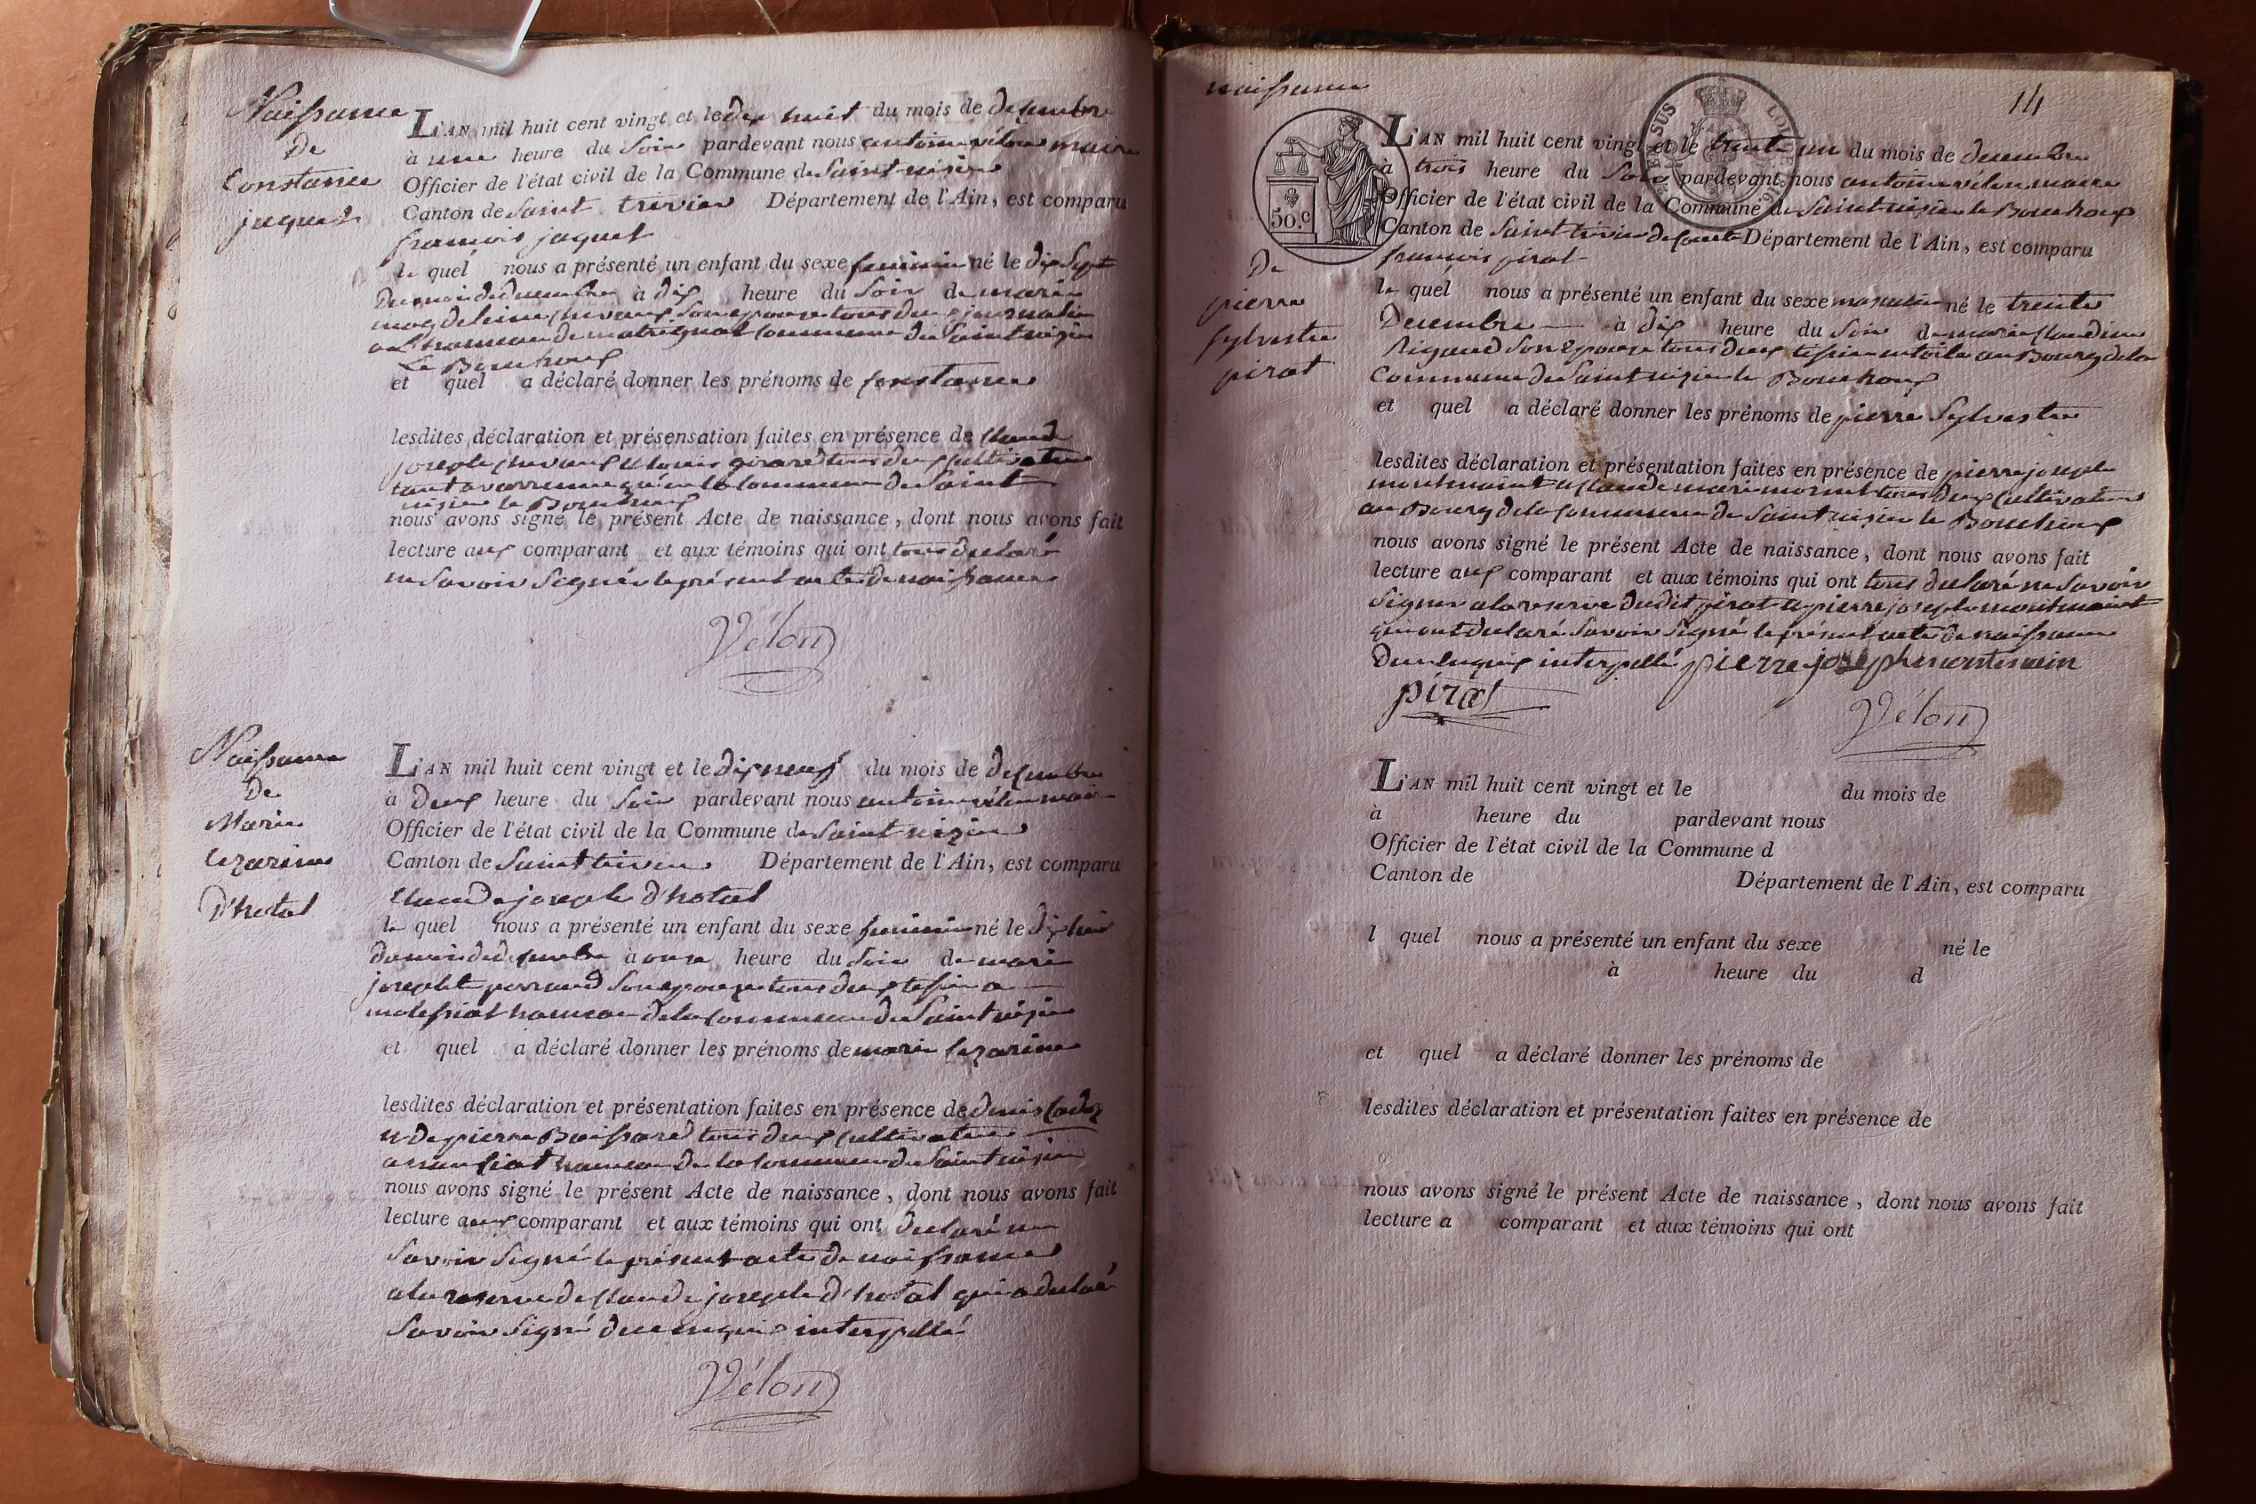 Naissance
De
Constance
jaquet
L'AN mil huit cent vingt et le dix huit du mois de decembre
à une heure du soir pardevant nous antoine vélon maire
Officier de l'état civil de la Commune de Saint nizier
Canton de Saint trivier Département de l'Ain, est comparu
françois jaquet
le quel nous a présenté un enfant du sexe feminin né le dix Sept
du mois de decembre à dix heure du Soir de marie
magdeleine chevaux Son epouse tous deux journalier
au hameau de Commune de Saint nizier
Le Bouchoux
et quel a déclaré donner les prénoms de Constance
lesdites déclaration et présensation faites en présence de Claude
joseph chevaux et louis girard tous deux Cultivateur
tant a varenne qu'en la Commune de Saint
nizier le Bouchoux
nous avons signé le présent Acte de naissance, dont nous avons fait
lecture aux comparant et aux témoins qui ont tous declaré
ne Savoir Signér le présent acte de naissance
Vélon
Naissance
De
Marie
Cezarine
D'hotal
L'AN mil huit cent vingt et le dix neuf du mois de decembre
à Deux heure du Soir pardevant nous antoine vélon maire
Officier de l'état civil de la Commune de Saint nizier
Canton de Saint trivier Département de l'Ain, est comparu
Claude joseph D'hotal
le quel nous a présenté un enfant du sexe feminin né le dix huit
du mois de decembre à onze heure du Soir de marie
josephte perraud Son epouse tous deux tessier a
hameau de la Commune de Saint nizier
et quel a déclaré donner les prénoms de marie Cezarine
lesdites déclaration et présentation faites en présence de denis
et De pierre Boissard tous deux Cultivateur
a hameau de la Commune de Saint nizier
nous avons signé le présent Acte de naissance, dont nous avons fait
lecture aux comparant et aux témoins qui ont declaré ne
Savoir Signé le présent acte de naissance
a la reserve de Claude joseph d'hotal qui a declaré
Savoir Signé de ce enquis interpellé
Vélon
naissance
14
50.c
De
pierre
Sylvestre
pirat
L'AN mil huit cent vingt et le trente un du mois de decembre
à trois heure du Soir pardevant nous antoine vélon maire
Officier de l'état civil de la Commune de Saint nizier le Bouchoux
Canton de Saint trivier de Courte Département de l'Ain, est comparu
françois pirat
le quel nous a présenté un enfant du sexe masculin né le trente
Decembre à dix heure du Soir de marie Claudine
Rigaud Son Epouse tous deux tessier en toile au Bourg de la
Commune de Saint nizier le Bouchoux
et quel a déclaré donner les prénoms de pierre Sylvestre
lesdites déclaration et présentation faites en présence de pierre joseph
montmaint et Claude marie mornet tous deux Cultivateur
au Bourg de la Commune de Saint nizier le Bouchoux
nous avons signé le présent Acte de naissance, dont nous avons fait
lecture aux comparant et aux témoins qui ont tous declaré ne Savoir
Signer a la reserve dudit pirat et pierre joseph montmaint
qui ont declaré Savoir Signé le présent acte de naissance
De ce enquis interpellé pierre joseph montémain
pirat
Vélon
L'AN mil huit cent vingt et le du mois de
à heure du pardevant nous
Officier de l'état civil de la Commune d
Canton de Département de l'Ain, est comparu
l quel nous a présenté un enfant du sexe né le
à heure du d
et quel a déclaré donner les prénoms de
lesdites déclaration et présentation faites en présence de
nous avons signé le présent Acte de naissance, dont nous avons fait
lecture a comparant et aux témoins qui ont